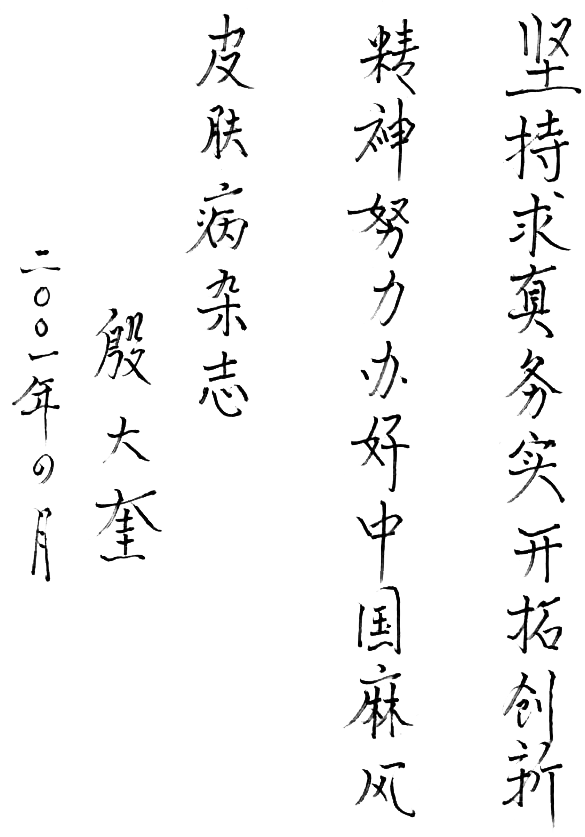 坚持求真务实开拓创新
精神努力办好中国麻风
皮肤病杂志
殷大奎
二〇〇一年四月